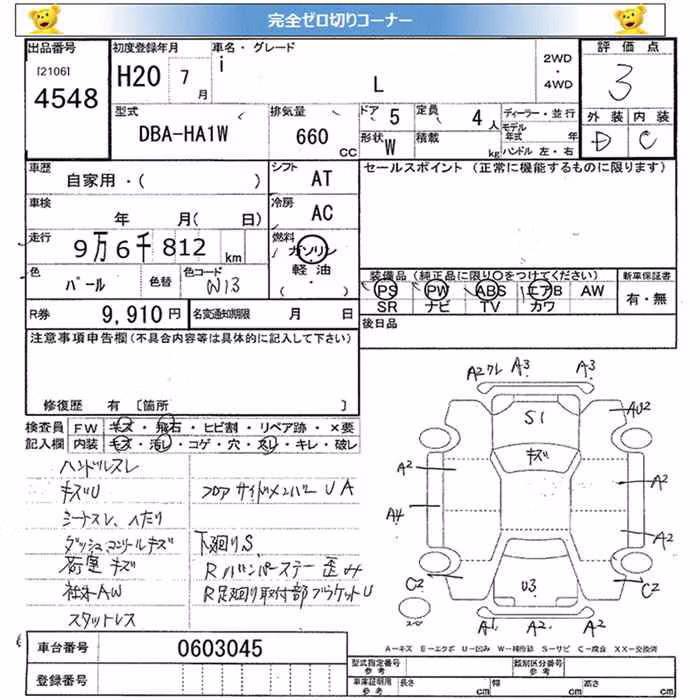 完全ゼロ切りコーナー
出品番号
[2106]
4548
初度登録年月
H20 7月
車名・グレード
i
L
2WD
・
4WD
評価点
3
外装 内装
D C
型式
DBA-HA1W
排気量
660 CC
ドア 5
定員 4人
形状 W
積載 kg
ディーラー・並行
モデル年式 年
ハンドル 左・右
車歴
自家用・( )
シフト
AT
セールスポイント (正常に機能するものに限ります)
車検
年 月( 日)
冷房
AC
走行
9万6千812km
燃料
ガソリン
軽油
( ・ )
色
パール
色替
色コード
W13
装備品 (純正品に限り○をつけてください)
PS PW ABS エアB AW
SR ナビ TV カワ
新車保証書
有・無
R券 9,910円
名変通知期限 月 日
後日品
注意事項申告欄(不具合内容等は具体的に記入して下さい)
修復歴 有 [箇所 ]
検査員記入欄
FW キズ・飛石・ヒビ割・リペア跡・×要
内装 キズ・汚レ・コゲ・穴・スレ・キレ・破レ
ハンドルスレ
キズU
シートスレ、ヘたり
ダッシュ、コンソールキズ
荷室キズ
社外AW
スタットレス
フロアサイドメンバーUA
下廻りS
Rバンパーステー歪み
R足廻り取付部ブラケットU
A2ワレ A3 A3
S1
AU2
キズ
A2
A2
A4
A2
C2
C2
U3
A1 A2 A2
A-キズ E-エクボ U-凹み W-補修跡 S-サビ C-腐食 XX-交換済
車台番号
0603045
登録番号
型式指定番号
参考
類別区分番号
参考
車庫証明用
参考
長さ cm
幅 cm
高さ cm